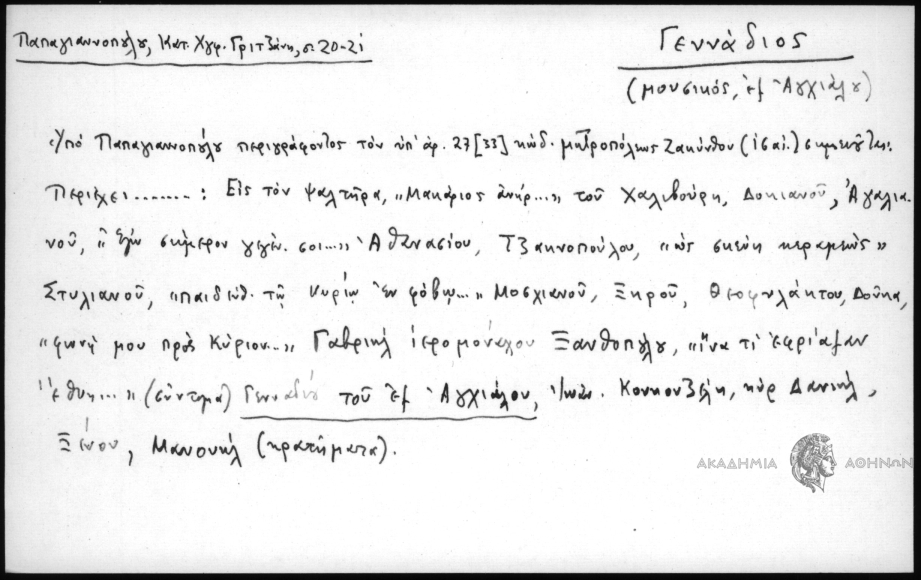 Παπαγιαννοπούλου, Κατ. Χγρ. Γριτζάνη, σ. 20-21
Γεννάδιος
(μουσικός, ἐξ Ἀγχιάλου)
Ὑπό Παπαγιαννοπούλου περιγράφοντος τὸν ὑπ' ἀρ. 27 [33] κώδ. μητροπόλεως Ζακύνθου (ιθ' αἰ.) σημειοῦται:
Περιέχει.......: Εἰς τὸν ψαλτῆρα, "Μακάριος ἀνήρ..." τοῦ Χαλιβούρη, Δοκιανοῦ, Ἀγαλια-
νοῦ, "Ἐγὼ σήμερον γεγέν. σοι..." Ἀθανασίου, Τζακνοπούλου, "ὡς σκεύη κεραμέως"
Στυλιανοῦ, "παιδευθ. τῷ Κυρίῳ ἐν φόβῳ..." Μοσχιανοῦ, Ξηροῦ, Θεοφυλάκτου, Δούκα,
"φωνῇ μου πρὸς Κύριον..." Γαβριήλ ἱερομονάχου Ξανθοπούλου, "ἵνα τί ἐφρύαξαν
ἔθνη..." (σύντομα) Γενναδίου τοῦ ἐξ Ἀγχιάλου, Ἰωάν. Κουκουζέλη, κὺρ Δανιήλ,
Ξένου, Μανουήλ (κρατήματα).
ΑΚΑΔΗΜΙΑ ΑΘΗΝΩΝ